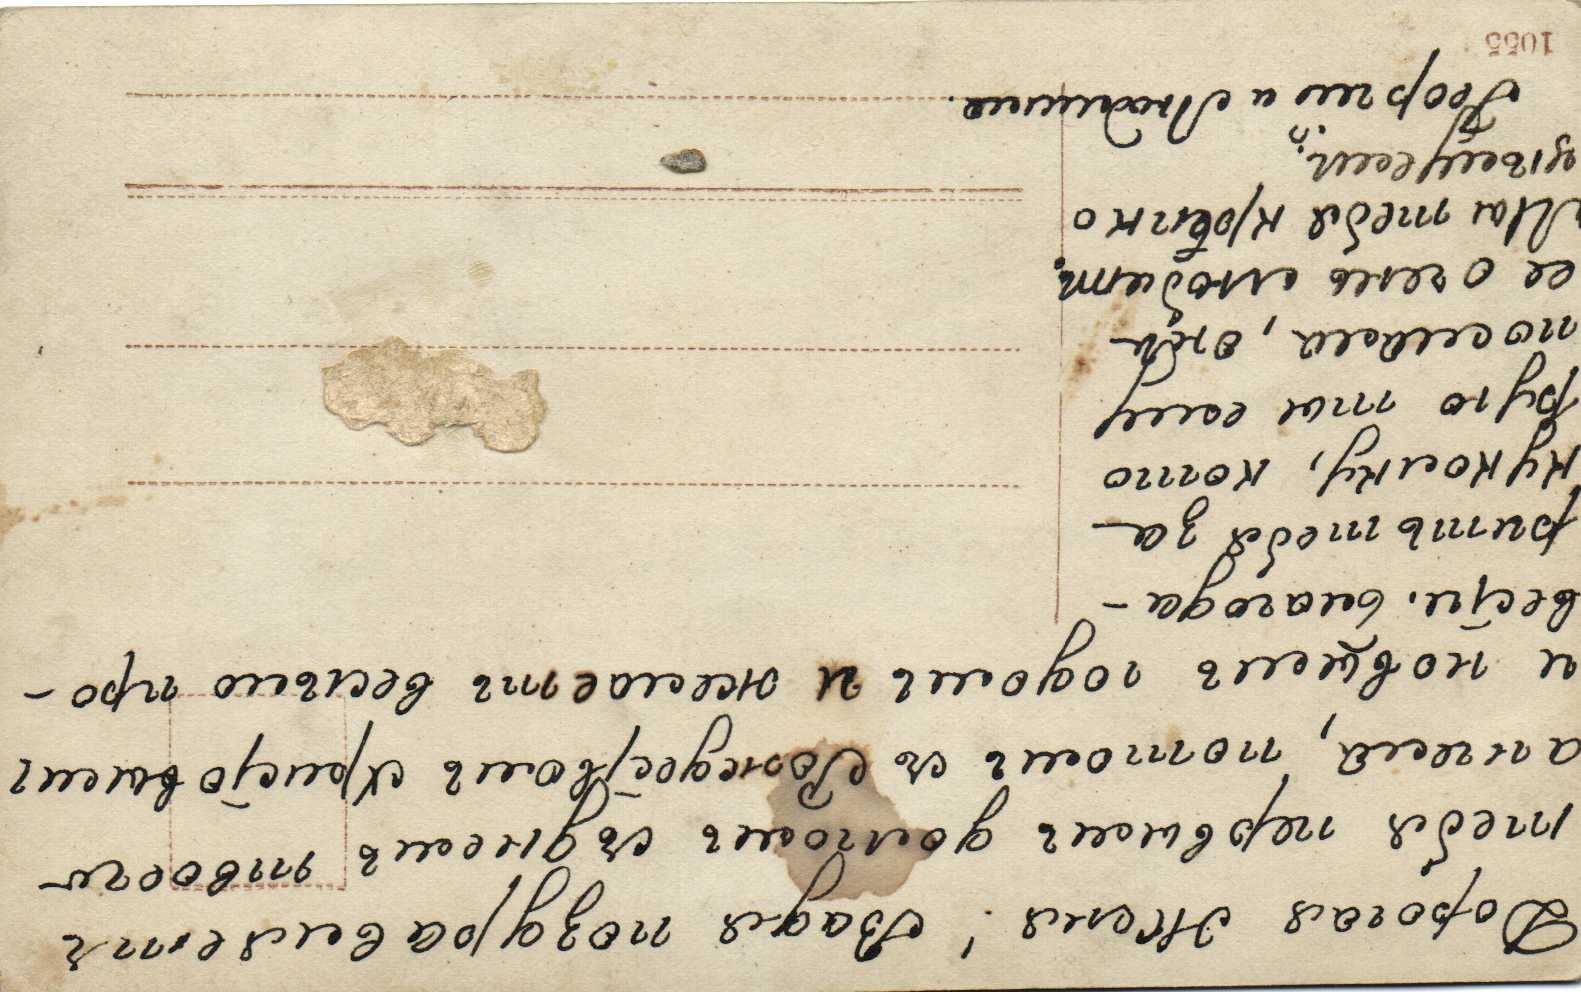 Дорогая Женя! Вадя поздравляетъ
тебя первымъ долгомъ съ днемъ твоего
ангела, потомъ съ Рождествомъ Христовымъ
и новымъ годомъ и желаетъ весѣло про-
вести. благода-
рить тебя за
куколку, кото
рую ты ему
послала, онъ
ее очень любит.
Мы тебя крѣпко
цѣлуем.
и
1055